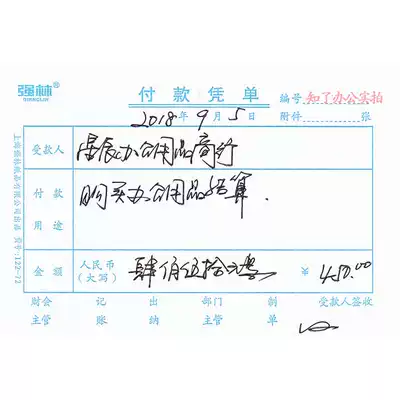 强林®
QIANGLIN
付款凭单
编号 知了办公实拍
2018年9月5日
附件 张
受款人 晨辰办公用品商行
付款用途 购买办公用品结算.
金额 人民币(大写) 肆佰伍拾元整 ¥450.00
财会主管 记账 出纳 部门主管 制单 受款人签收
上海强林纸品有限公司出品 货号:122-72